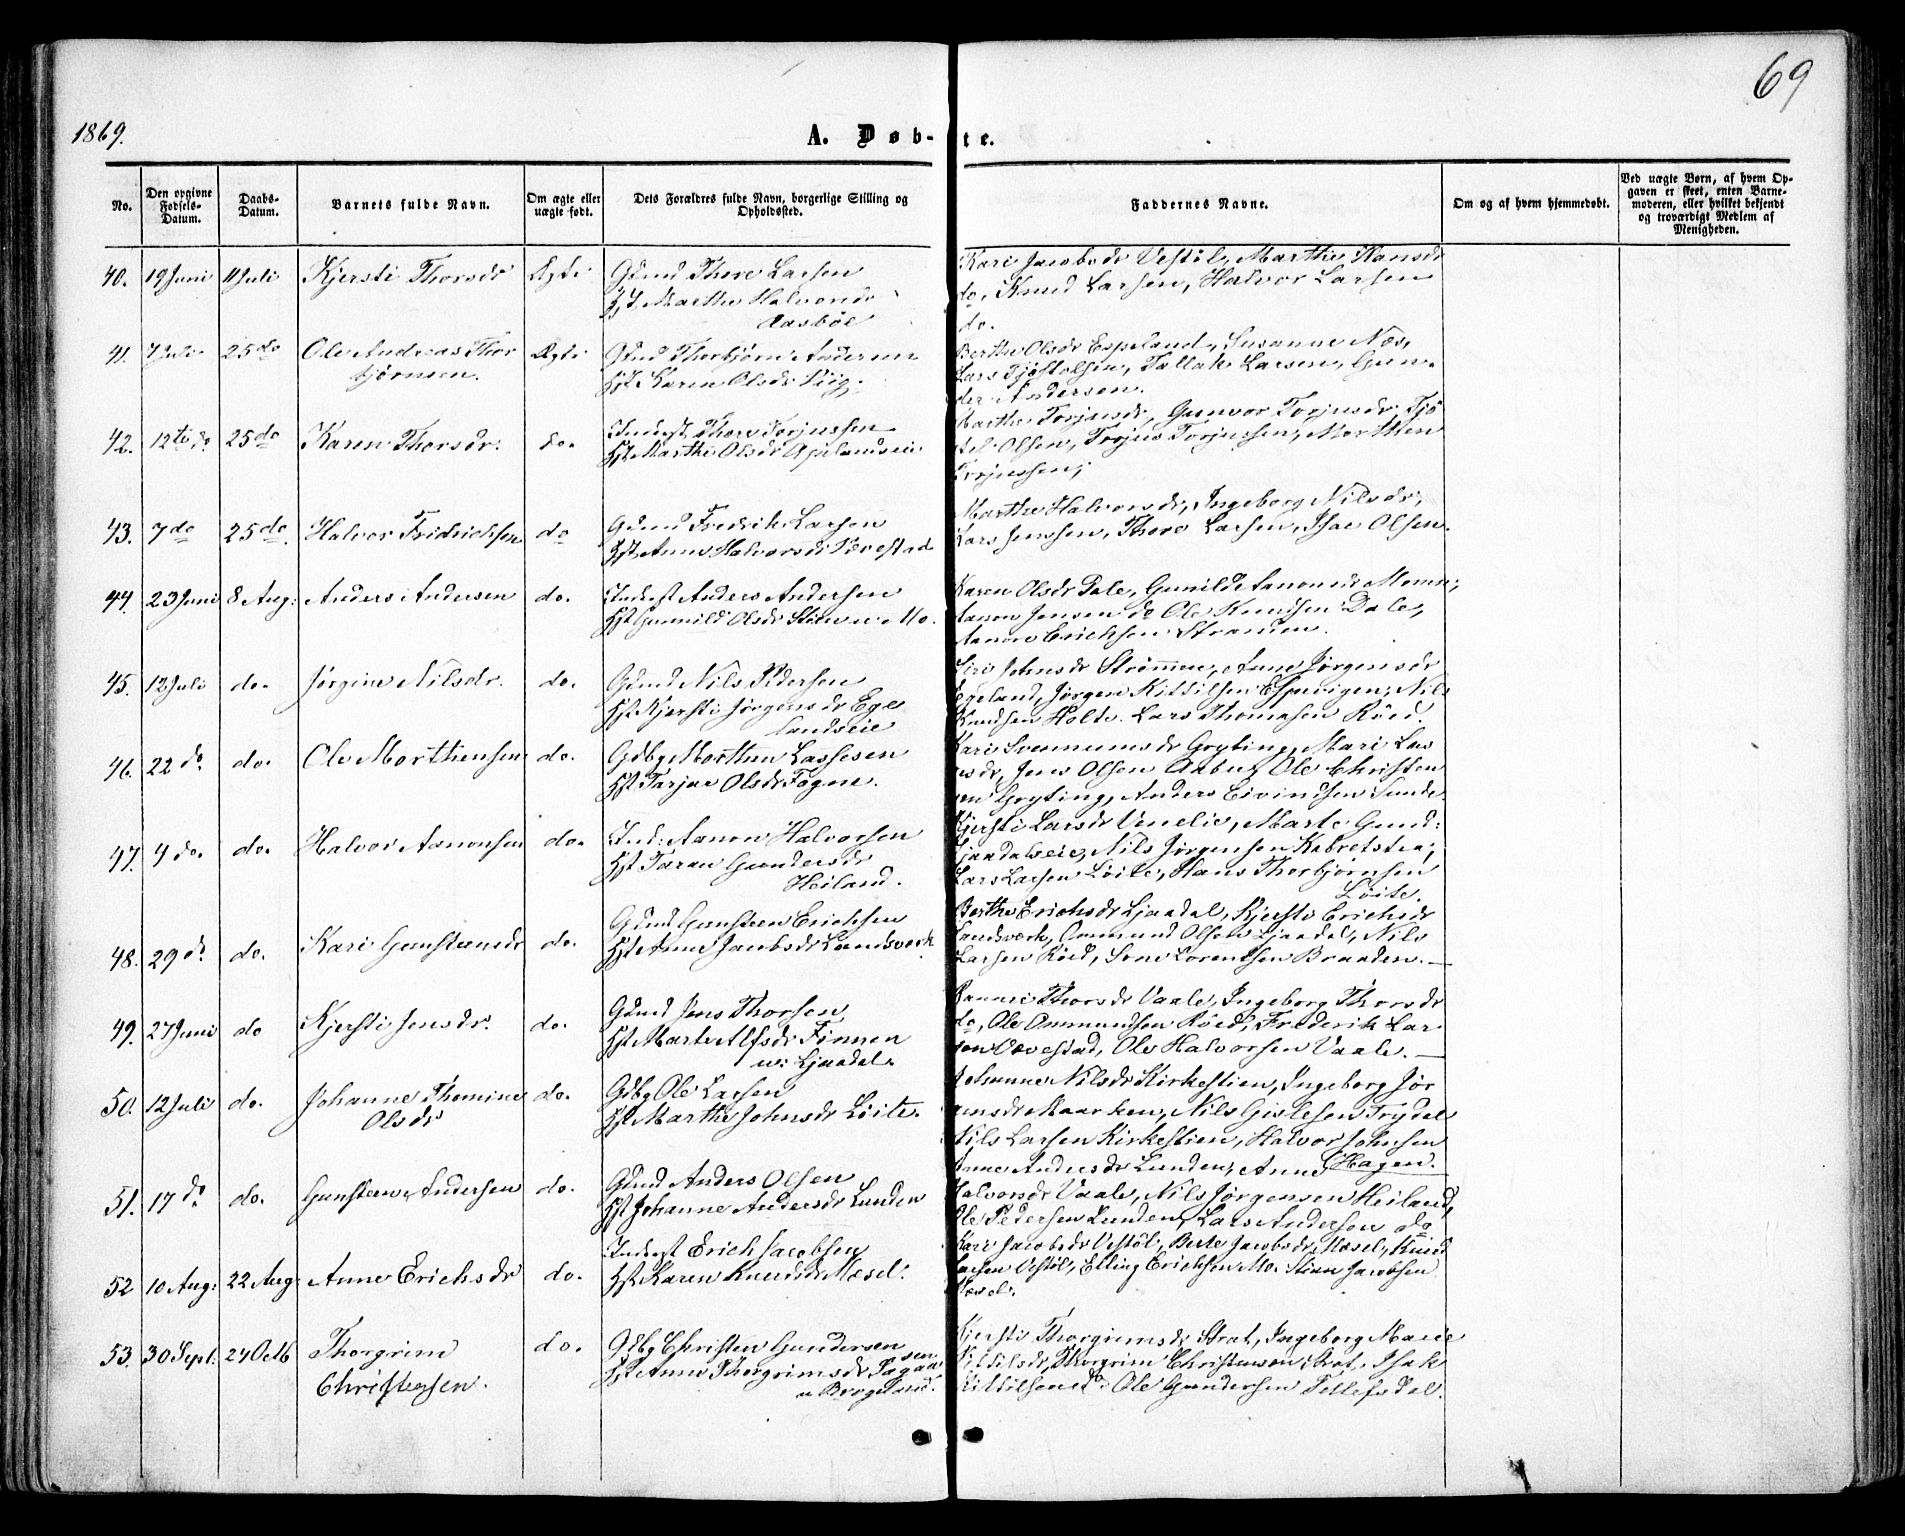 69
1869.
A. Døb-te.
No.
Den opgivne Fødsels-Datum.
Daabs-Datum.
Barnets fulde Navn.
Om ægte eller uægte født.
Dets Forældres fulde Navn, borgerlige Stilling og Opholdssted.
Faddernes Navne.
Om og af hvem hjemmedøbt.
Ved uægte Børn, af hvem Opgaven er skeet, enten Barnemoderen, eller hvilket bekjendt og troværdigt Medlem af Menigheden.
40. 19 Juni 11 Juli Kjersti Thorsdr Ægte Gdmd Thore Larsen
Hst Marthe Halvorsdr
Aasbøe
Kari Jacobsdr Vestøl, Marthe Hansdr
do, Knud Larsen, Halvor Larsen
do.
41. 7 Juli 25 do Ole Andreas Thor
bjørnsen. Ægte Gdmd Thorbjørn Andersen
Hst Karen Olsdr Viig.
Berthe Olsdr Espeland, Susanne Næs,
Lars Tjøstolsen, Tallak Larsen, Gun-
der Andersen.
42. 12te do 25 do Karen Thorsdr. do. Inderst Thore Torjussen
Hst Marthe Olsdr Apelandseie
Marthe Torjusdr, Gunvor Torjusdr, Tjø
stel Olsen, Torjus Torjussen, Morthen
Torjussen,
43. 7 do 25 do. Halvor Fridrichsen do Gdmd Fredrik Larsen
Hst Anne Halvorsdr Vævestad
Marthe Halvorsdr, Ingeborg Nilsdr,
Lars Jenssen, Thore Larsen, Isac Olsen.
44. 23 Juni 8 Aug: Anders Andersen do. Inderst Anders Andersen
Hst Gunnild Olsdr Mo.
Karen Olsdr Dale, Gunild Aanonsdr Momn,
Aanon Jensen do Ole Knudsen Dale,
Aanon Erichsen Strømmen.
45. 12 Juli do. Jørgine Nilsdr. do. Gdmd Nils Pedersen
Hst Kjersti Jørgensdr Ege
landseie
Siri Johnsdr Strømmen, Anne Jørgensdr
Egeland, Jørgen Kittilsen Espeviigen, Nils
Knudsen Holte. Lars Thomasen Röed.
46. 22 do. do. Ole Morthensen do. Gdbg Morthen Lassesen
Hst Tarjer Olsdr Fogne.
Kari Gryting, Mari Las
sesdr, Jens Olsen Aabu, Ole Christen
sen Gryting, Anders Eivindsen Sunde.
47. 4 do. do. Halvor Aanonsen do. Ind: Aanon Halvorsen
Hst Taran Gundersdr
Heiland.
Kjersti Larsdr Venelie, Marte Gund:
Ljaadalseie, Nils Jørgensen Kabretstea,
Lars Larsen Løite, Hans Thorbjørnsen
Løite.
48. 29 do. do. Kari Gunsteensdr do. Gdmd Gunsteen Erichsen
Hst Anne Jacobsdr Landsverk
Berthe Erichsdr Ljaadal, Kjersti Erichsdr
Landsværk, Ommund Olsen Ljaadal, Nils
Larsen Röed, Sone Lorentsen Braaden.
49. 27 Juni do Kjersti Jensdr. do. Gdmd Jens Thorsen
Hst Marte Alfsdr Finnen
u: Ljaadal.
Thorsdr Vaale, Ingeborg Thorsdr
do, Ole Ommundsen Röed, Frederik Lar
sen Vævestad, Ole Halvorsen Vaale.
50. 12 Juli do. Johanne Thomine
Olsdr do. Gdbg Ole Larsen
Hst Marthe Johnsdr Löite.
Johanne Nilsdr Kirkestien, Ingeborg Jør
gensdr Maarken, Nils Gislesen Trydal
Nils Larsen Kirkestien, Halvor Johnsen
Hagen.
51. 17 do. do. Gunsteen Andersen do. Gdmd Anders Olsen
Hst Johanne Andersdr Lunden
Anne Andersdr Lunden, Anne
Halvorsdr Vaale, Nils Jörgensen Heiland,
Ole Pedersen Lunden, Lars Andersen do
52 10 Aug: 22 Aug: Anne Erichsdr do. Inderst Erich Jacobsen
Hst Karen Knudsdr Mæsel.
Kari Jacobsdr Vestøl, Berte Jacobsdr Mæsel, Knud
Larsen Vestøl, Elling Erichsen Mo. Stian Jacobsen
Mæsel.
53. 30 Sept: 24 Octb Thorgrim
Christensen. do. Gdbg Christen Gundersen
Hst Anne Thorgrimsdr
u Brogeland.
Kjersti Thorgrimsdr Strat, Ingeborg Marie
Kittilsdr, Thorgrim Christensen Strat, Isak
Kittilsen do. Ole Gundersen Tellefsdal.